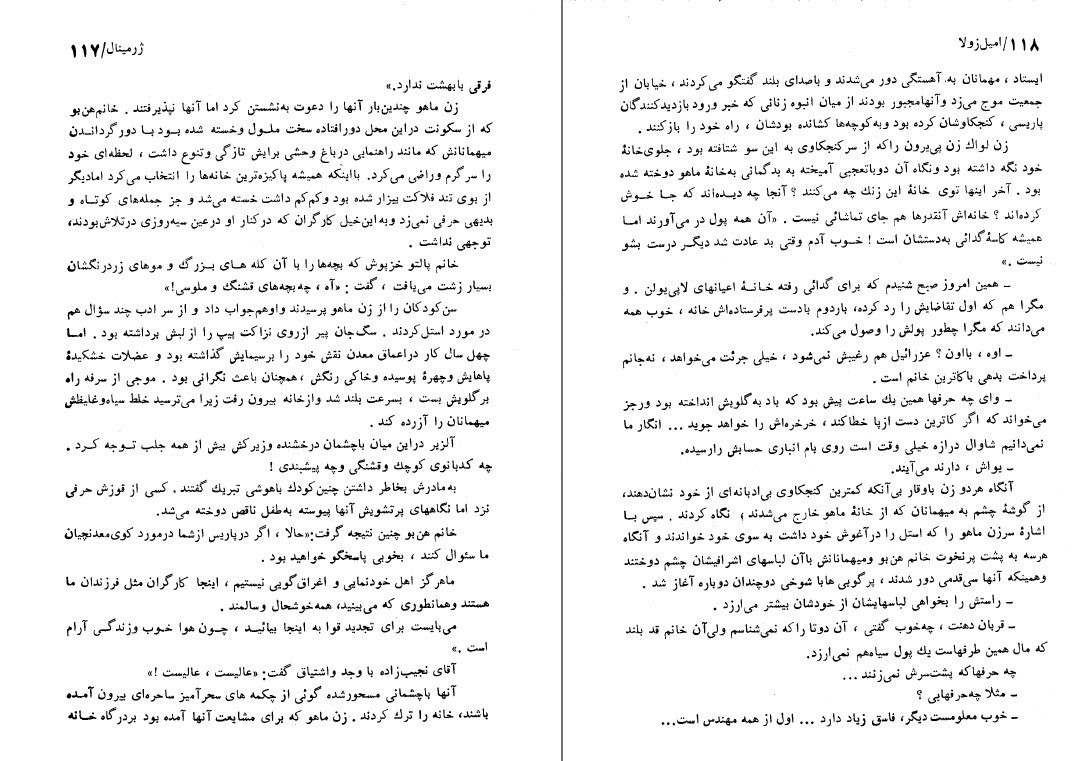 ژرمینال/۱۱۷
فرقی بابهشت ندارد.»
زن ماهو چندین‌بار آنها را دعوت به‌نشستن کرد اما آنها نپذیرفتند . خانم‌هن‌بو
که از سکونت دراین محل دورافتاده سخت ملول وخسته شده بود با دورگرداندن
میهمانانش که مانند راهنمایی درباغ وحشی برایش تازگی وتنوع داشت ، لحظه‌ای خود
را سرگرم وراضی می‌کرد. بااینکه همیشه پاکیزه‌ترین خانه‌ها را انتخاب می‌کرد امادیگر
از بوی تند فلاکت بیزار شده بود وکم‌کم داشت خسته می‌شد و جز جمله‌های کوتاه و
بدیهی حرفی نمی‌زد وبه‌این‌خیل کارگران که درکنار او درعین سیه‌روزی درتلاش‌بودند،
توجهی نداشت .
خانم پالتو خزپوش که بچه‌ها را با آن کله های بزرگ و موهای زردرنگشان
بسیار زشت می‌یافت ، گفت : «آه ، چه‌بچه‌های قشنگ و ملوسی!»
سن‌کودکان را از زن ماهو پرسیدند واوهم‌جواب داد و از سر ادب چند سؤال هم
در مورد استل‌کردند . سگ‌جان پیر ازروی نزاکت پیپ را از لبش برداشته بود . اما
چهل سال کار دراعماق معدن نقش خود را برسیمایش گذاشته بود و عضلات خشکیدهٔ
پاهایش وچهرهٔ پوسیده وخاکی رنگش ، همچنان باعث نگرانی بود . موجی از سرفه راه
برگلویش بست ، بسرعت بلند شد وازخانه بیرون رفت زیرا می‌ترسید خلط سیاه‌وغلیظش
میهمانان را آزرده کند .
آلزیر دراین میان باچشمان درخشنده وزیرکش بیش از همه جلب توجه کرد .
چه کدبانوی کوچك وقشنگی وچه پیشبندی !
به‌مادرش بخاطر داشتن چنین‌کودك باهوشی تبریك گفتند . کسی از قوزش حرفی
نزد اما نگاههای پرتشویش آنها پیوسته به‌طفل ناقص دوخته می‌شد.
خانم هن‌بو چنین نتیجه گرفت:«حالا ، اگر درپاریس ازشما درمورد کوی‌معدنچیان
ما سئوال کنند ، بخوبی پاسخگو خواهید بود .
ماهرگز اهل خودنمایی و اغراق‌گویی نیستیم ، اینجا کارگران مثل فرزندان ما
هستند وهمانطوری که می‌بینید، همه‌خوشحال وسالمند .
می‌بایست برای تجدید قوا به اینجا بیائید ، چون هوا خوب وزندگی آرام
است .»
آقای نجیب‌زاده با وجد واشتیاق گفت: «عالیست ، عالیست !»
آنها باچشمانی مسحورشده گوئی از چکمه های سحرآمیز ساحره‌ای بیرون آمده
باشند، خانه را ترك کردند . زن ماهو که برای مشایعت آنها آمده بود بردرگاه خانه
۱۱۸/امیل‌زولا
ایستاد ، مهمانان به آهستگی دور می‌شدند و باصدای بلند گفتگو می‌کردند ، خیابان از
جمعیت موج می‌زد وآنهامجبور بودند از میان انبوه زنانی که خبر ورود بازدیدکنندگان
پاریسی ، کنجکاوشان کرده بود وبه‌کوچه‌ها کشانده بودشان ، راه خود را بازکنند .
زن لواك زن پی‌یرون راکه از سرکنجکاوی به این سو شتافته بود ، جلوی‌خانهٔ
خود نگه داشته بود ونگاه آن دوباتعجبی آمیخته به بدگمانی به‌خانهٔ ماهو دوخته شده
بود . آخر اینها توی خانهٔ این زنك چه می‌کنند ؟ آنجا چه دیده‌اند که جا خوش
کرده‌اند ؟ خانه‌اش آنقدرها هم جای تماشائی نیست . «آن همه پول در می‌آورند اما
همیشه کاسهٔ گدائی به‌دستشان است ! خوب آدم وقتی بد عادت شد دیگر درست بشو
نیست .»
ـ همین امروز صبح شنیدم که برای گدائی رفته خانهٔ اعیانهای لاپی‌یولن . و
مگرا هم که اول تقاضایش را رد کرده، باردوم بادست پرفرستاده‌اش خانه ، خوب همه
می‌دانند که مگرا چطور پولش را وصول می‌کند.
ـ اوه ، بااون ؟ عزرائیل هم رغبش نمی‌شود ، خیلی جرئت می‌خواهد ، نه‌جانم
پرداخت بدهی باکاترین خانم است .
ـ وای چه حرفها همین یك ساعت پیش بود که باد به‌گلویش انداخته بود ورجز
می‌خواند که اگر کاترین دست ازپا خطاکند ، خرخره‌اش را خواهد جوید ... انگار ما
نمی‌دانیم شاوال درازه خیلی وقت است روی بام انباری حسابش رارسیده.
ـ یواش ، دارند می‌آیند.
آنگاه هردو زن باوقار بی‌آنکه کمترین کنجکاوی بی‌ادبانه‌ای از خود نشان‌دهند،
از گوشهٔ چشم به میهمانان که از خانهٔ ماهو خارج می‌شدند؛ نگاه کردند . سپس با
اشارهٔ سرزن ماهو را که استل را درآغوش خود داشت به سوی خود خواندند و آنگاه
هرسه به پشت پرنخوت خانم هن‌بو ومیهمانانش باآن لباسهای اشرافیشان چشم دوختند
وهمینکه آنها سی‌قدمی دور شدند ، پرگویی هابا شوخی دوچندان دوباره آغاز شد .
ـ راستش را بخواهی لباسهایشان از خودشان بیشتر می‌ارزد .
ـ قربان دهنت ، چه‌خوب گفتی ، آن دوتا راکه نمی‌شناسم ولی‌آن خانم قد بلند
که مال همین طرفهاست یك پول سیاه‌هم نمی‌ارزد.
چه حرفهاکه پشت‌سرش نمی‌زنند ...
ـ مثلا چه‌حرفهایی ؟
ـ خوب معلومست دیگر، فاسق زیاد دارد ... اول از همه مهندس است...